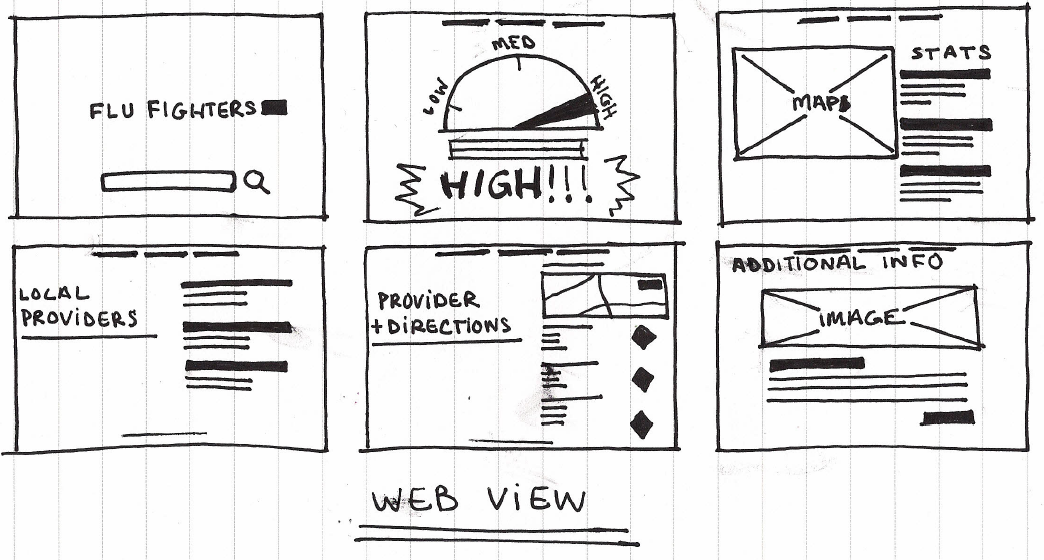 FLU FIGHTERS
LOW
MED
HIGH
HIGH!!!
MAPS
STATS
LOCAL
PROViDERS
PROViDER
+DIRECTIONS
ADDITIONAL INFO
IMAGE
WEB ViEW